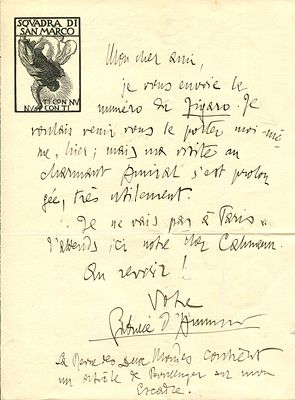 SQVADRA DI
SAN MARCO
TI CON NV
NVS CON TI
Mon cher ami,
je vous envoie le
numéro de Figaro. Je
voulais venir vous le porter moi-mê-
me, hier; mais ma visite au
charmant Amiral s'est prolon
gée, très utilement.
Je ne vais pas à Paris.
J'attends ici notre cher Calmann.
Au revoir!
Votre
Gabriele d'Annunzio
La Revue des Deux Mondes contient
un article de Boulenger sur mon
Escadre.